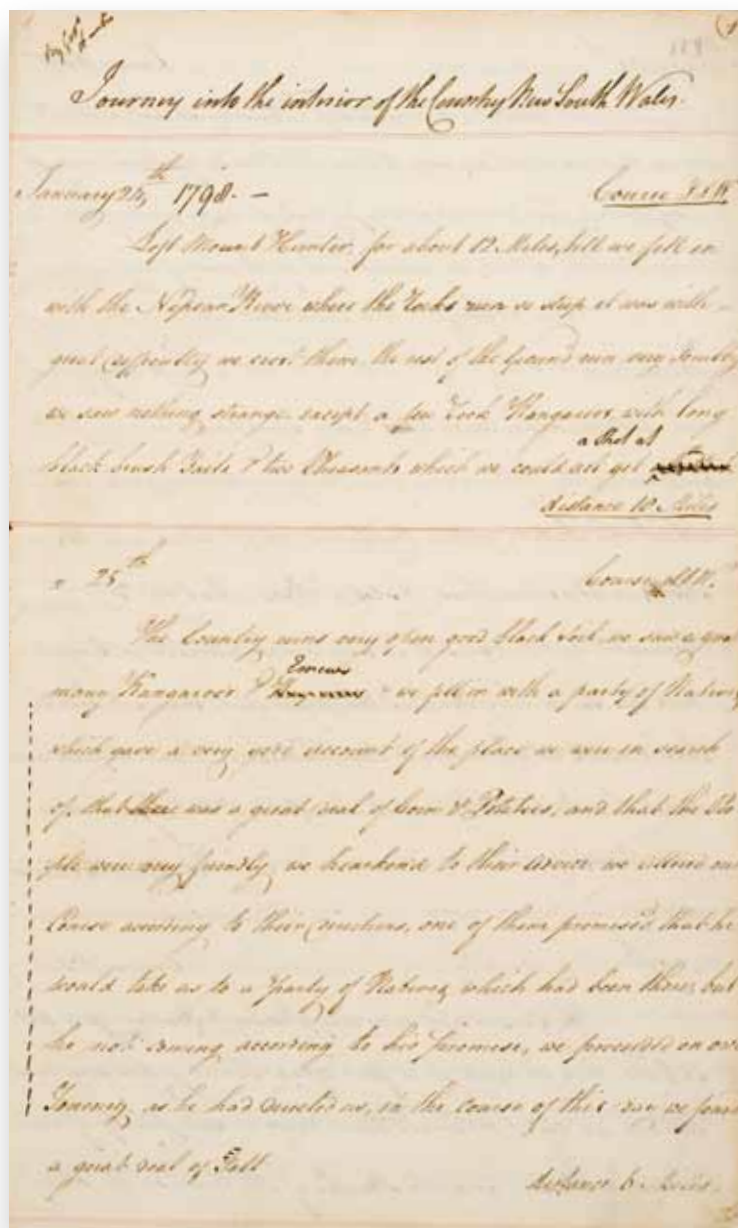 Journey into the interior of the Country New South Wales.
January 24th 1798. —
Course S S W
Left Mount Hunter for about 12 Miles, till we fell in
with the Nepean River where the Rocks run so steep it was with
great difficulty we cross'd them the rest of the Ground run very Scrubby
we saw nothing strange except a few Rock Kangaroos with long
a Shot at
black brush Tails & two Pheasants which we could not get
distance 18 Miles
25th
Course SSW.
The Country runs very open good black Soil we saw a great
Emews
many Kangaroos & we fell in with a party of Natives
which gave a very good account of the place we were in search
of, that there was a great deal of Corn & Potatoes, and that the Peo
ple were very friendly, we hearkened to their advice we altered our
Course according to their directions, one of them promised that he
would take us to a party of Natives which had been there, but
he not coming according to his promise, we proceeded on our
Journey as he had directed us, in the course of this day we found
a great deal of Salt
distance 6 Miles.